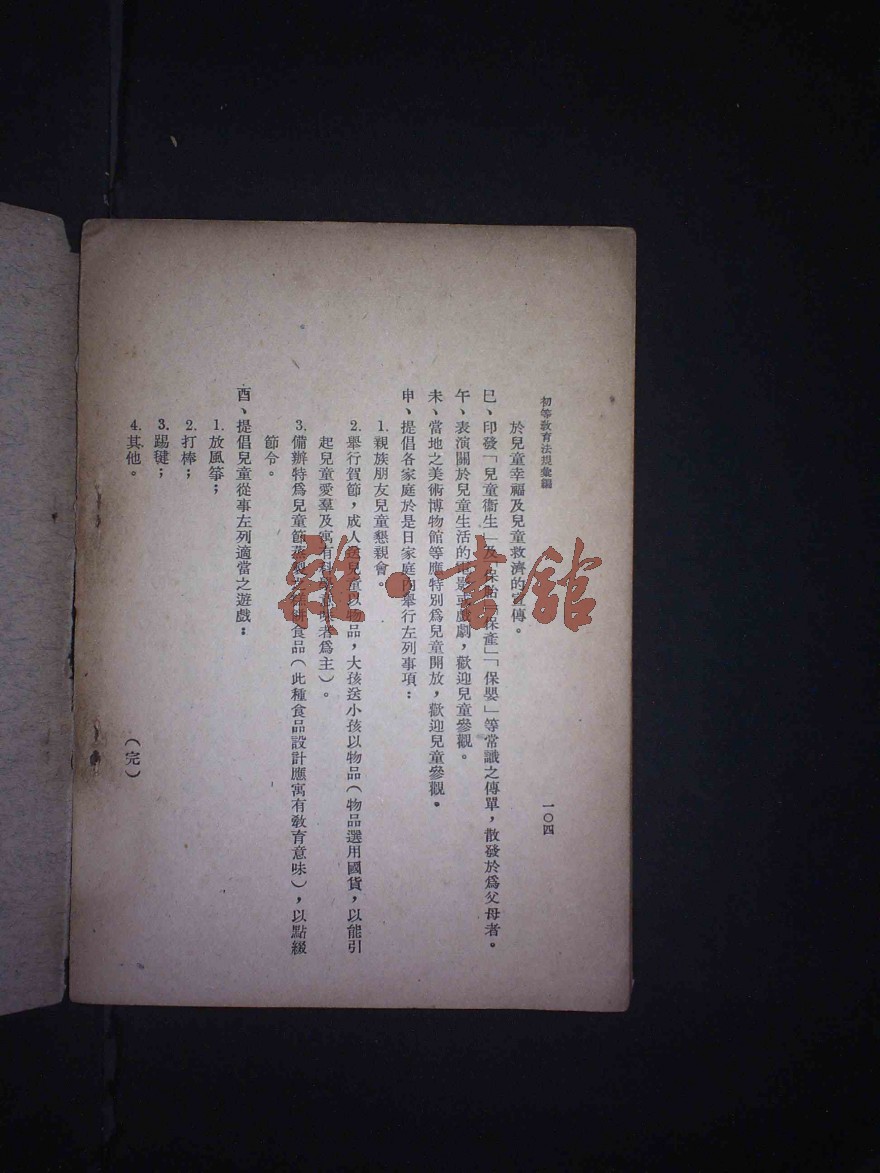 初等教育法規彙編
一〇四
於兒童幸福及兒童救濟的宣傳。
巳、印發「兒童衞生」及「保胎」「保產」「保嬰」等常識之傳單，散發於爲父母者。
午、表演關於兒童生活的電影或戲劇，歡迎兒童參觀。
未、當地之美術博物館等應特別爲兒童開放，歡迎兒童參觀。
申、提倡各家庭於是日家庭內舉行左列事項：
1. 親族朋友兒童懇親會。
2. 舉行賀節，成人送兒童以物品，大孩送小孩以物品（物品選用國貨，以能引
起兒童愛羣及寓有科學意味者爲主）。
3. 備辦特爲兒童節蒸製之糕餅食品（此種食品設計應寓有教育意味），以點綴
節令。
酉、提倡兒童從事左列適當之遊戲：
1. 放風箏；
2. 打棒；
3. 踢毽；
4. 其他。
（完）
雜·書館